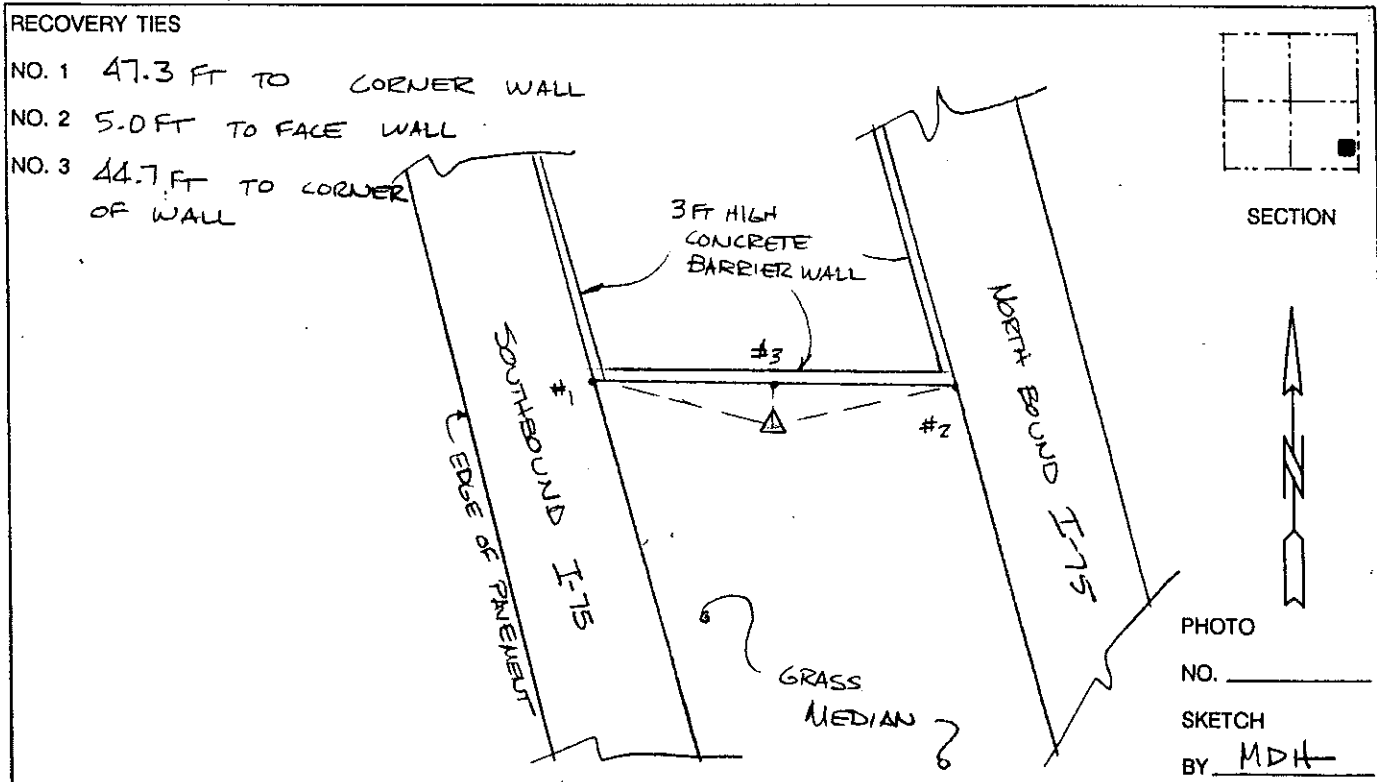 RECOVERY TIES
NO. 1 47.3 FT TO CORNER WALL
NO. 2 5.0 FT TO FACE WALL
NO. 3 44.7 FT TO CORNER
OF WALL
SECTION
3 FT HIGH
CONCRETE
BARRIER WALL
#3
#1
#2
SOUTHBOUND I-75
NORTH BOUND I-75
EDGE OF PAVEMENT
GRASS
MEDIAN
N
PHOTO
NO.
SKETCH
BY MDH